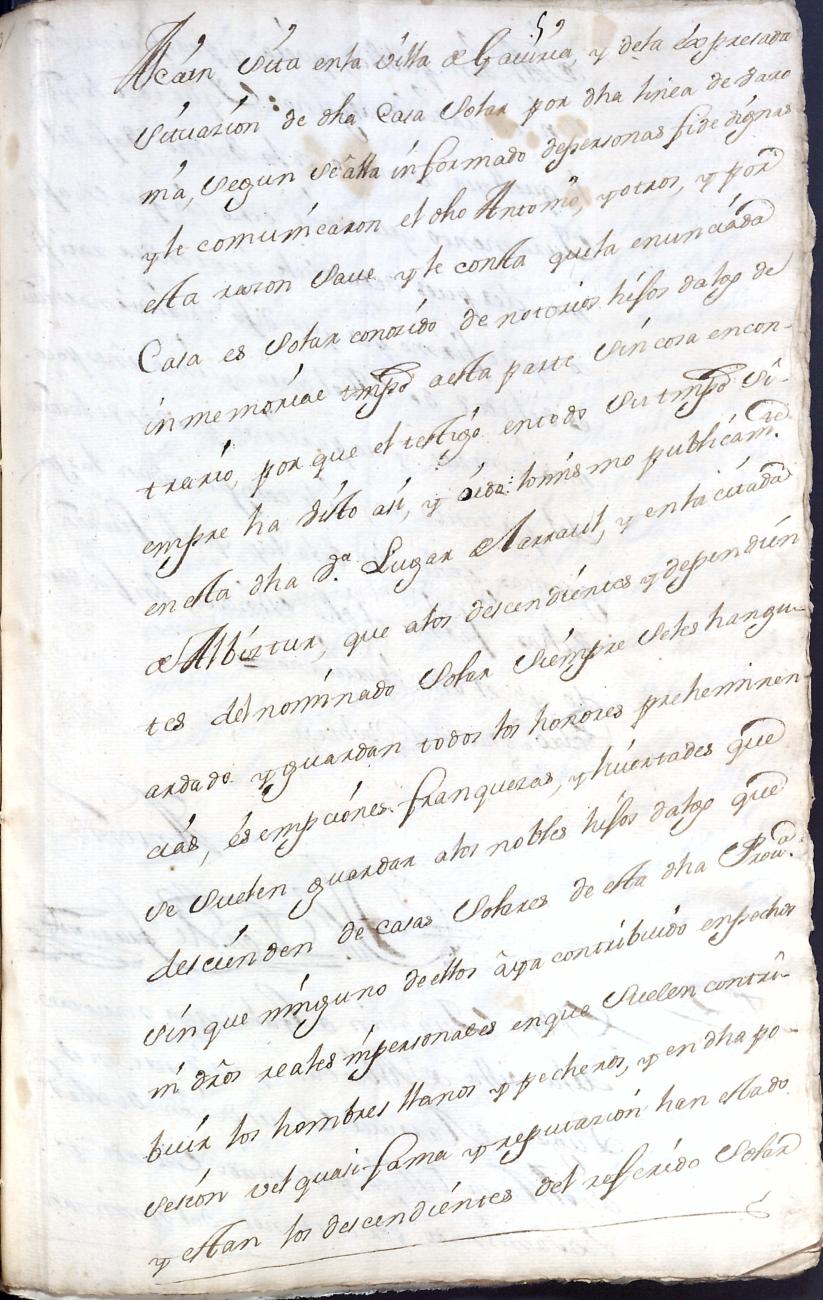 59
Alcain sita enla villa de Gaviria, y dela expresada
situazion de dha Casa solar por dha linea de
ma, segun se alla informado depersonas fidedignas
y le comunicaron el dho Antonio, y otros, y por
esta razon save y le consta quela enunciada
Casa es solar conozido de notorios hijos dalgo de
inmemoriae tmpo aesta parte sin cosa encon-
trario, por que el testigo entodo su tmpo si-
empre ha visto asi, y oido: lomismo publicamte
enesta dha Va. Lugar de Larraul, y enla citada
de Albistur, que alos descendientes y dependien
tes del nominado solar siempre seles hangu-
ardado y guardan todos los honores preheminen
cias, esempciones franquezas, y livertades que
se suelen guardar alos nobles hijos dalgo que
descienden de casas solares de esta dha Prova.
sin que ninguno de ellos aya contribuido enpechos
ni dros reales nipersonales enque suelen contri-
buir los hombres llanos y pecheros, y en dha po-
sesion vel quasi fama y reputazion han estado
y estan los descendientes del referido solar